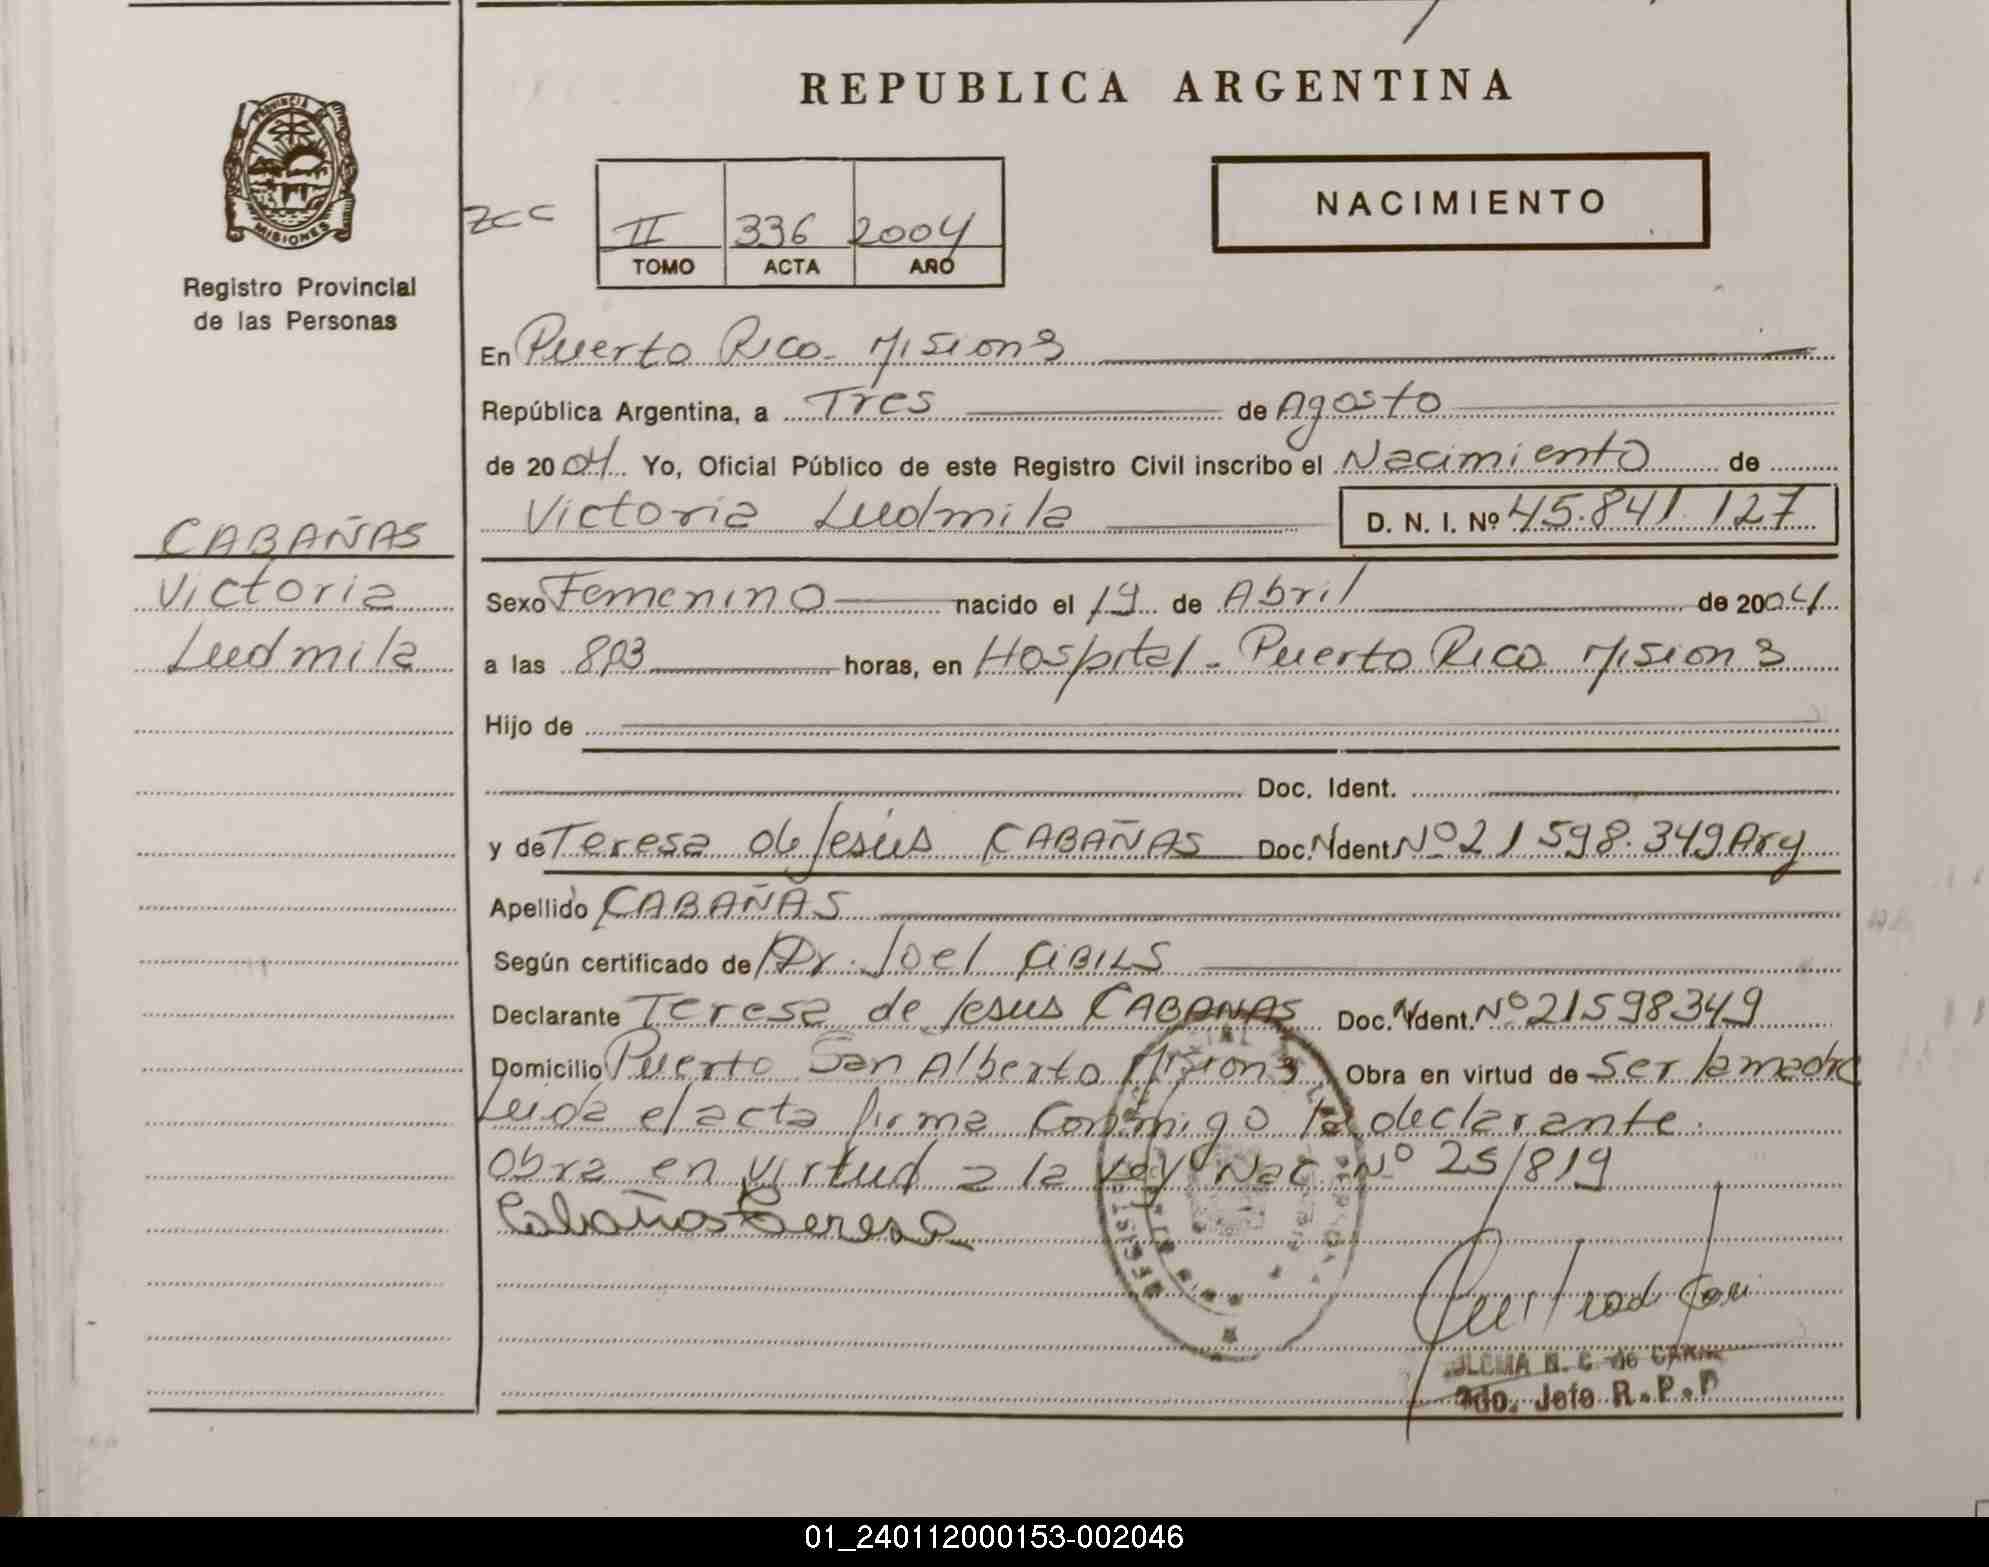 REPUBLICA ARGENTINA
PROVINCIA DE
MISIONES
Registro Provincial
de las Personas
NACIMIENTO
ZCC
II 336 2004
TOMO ACTA AÑO
En Puerto Rico - Misiones
República Argentina, a Tres de Agosto
de 2004 Yo, Oficial Público de este Registro Civil inscribo el Nacimiento de
Victoria Ludmila D. N. I. Nº 45.841.127
CABAÑAS
Victoria
Ludmila
Sexo Femenino nacido el 19 de Abril de 2004
a las 8,03 horas, en Hospital - Puerto Rico Misiones
Hijo de
Doc. Ident.
y de Teresa de Jesús CABAÑAS Doc. Ident. Nº 21 598.349 Arg
Apellido CABAÑAS
Según certificado de Dr. Joel CIBILS
Declarante Teresa de Jesus CABAÑAS Doc. Ident. Nº 21598349
Domicilio Puerto San Alberto Misiones Obra en virtud de Ser la madre
Leida el acta firma Conmigo la declarante.
Obra en virtud a la Ley Nac. Nº 25/819
Cabañas Teresa
N. C. de
2do. Jefe R.P.P
01_240112000153-002046